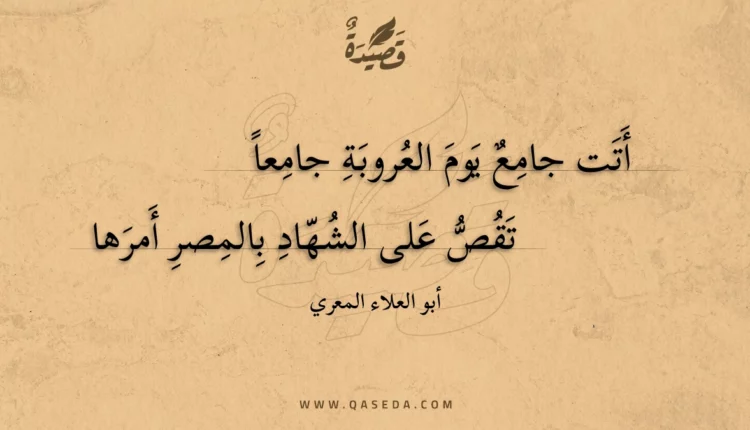 قَصِيدَةٌ
أَتَت جامِعٌ يَومَ العُروبَةِ جامِعاً
تَقُصُّ عَلى الشُهّادِ بِالمِصرِ أَمرَها
أبو العلاء المعري
WWW.QASEDA.COM